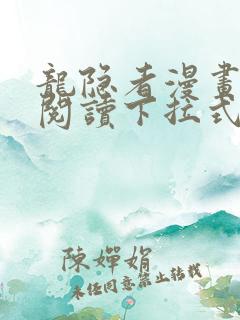 龍隐者漫畫
閱讀下拉式
陳嬋娟
未经同意禁止转载